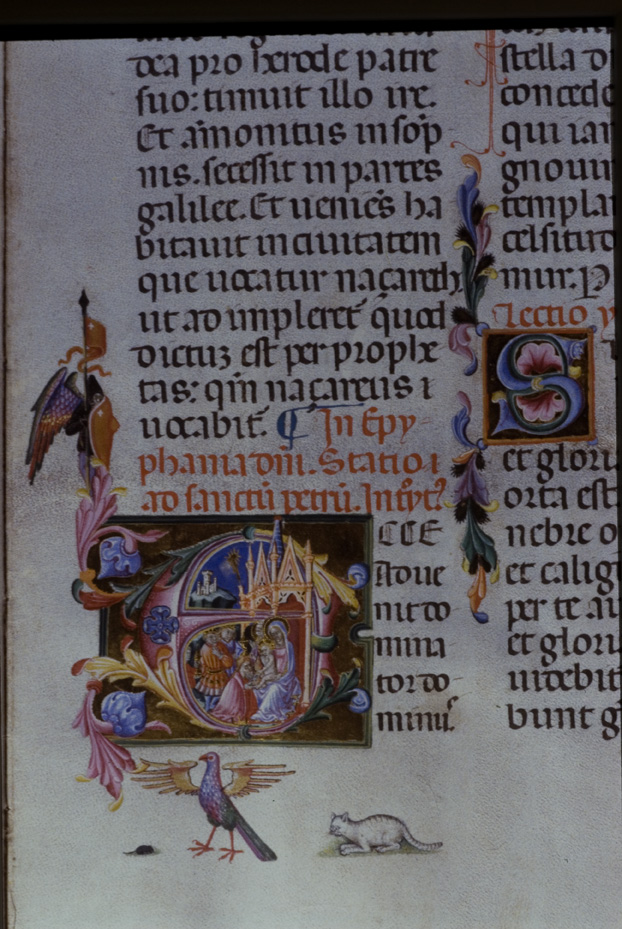 dea pro herode patre
suo: timuit illo ire.
Et āmonitus in sōp
nis. secessit in partes
galilee. Et ueniēs ha
bitauit in ciuitatem
que uocatur naçareth
ut ad impleret quod
dictuȝ est per prophe
tas: qm̄ naçareus
uocabit̄. ¶ In Epy-
phania dn̄i. Statio
ad sanctū petrū.
ECCE
Adue
nit do
mina
tor do-
minus
stella
concede
qui
gnoui
templa
celsitud
mur. P
Lectio
S
et glori
orta est
nebre
et calig
per te
et glori
uidebit
bunt g